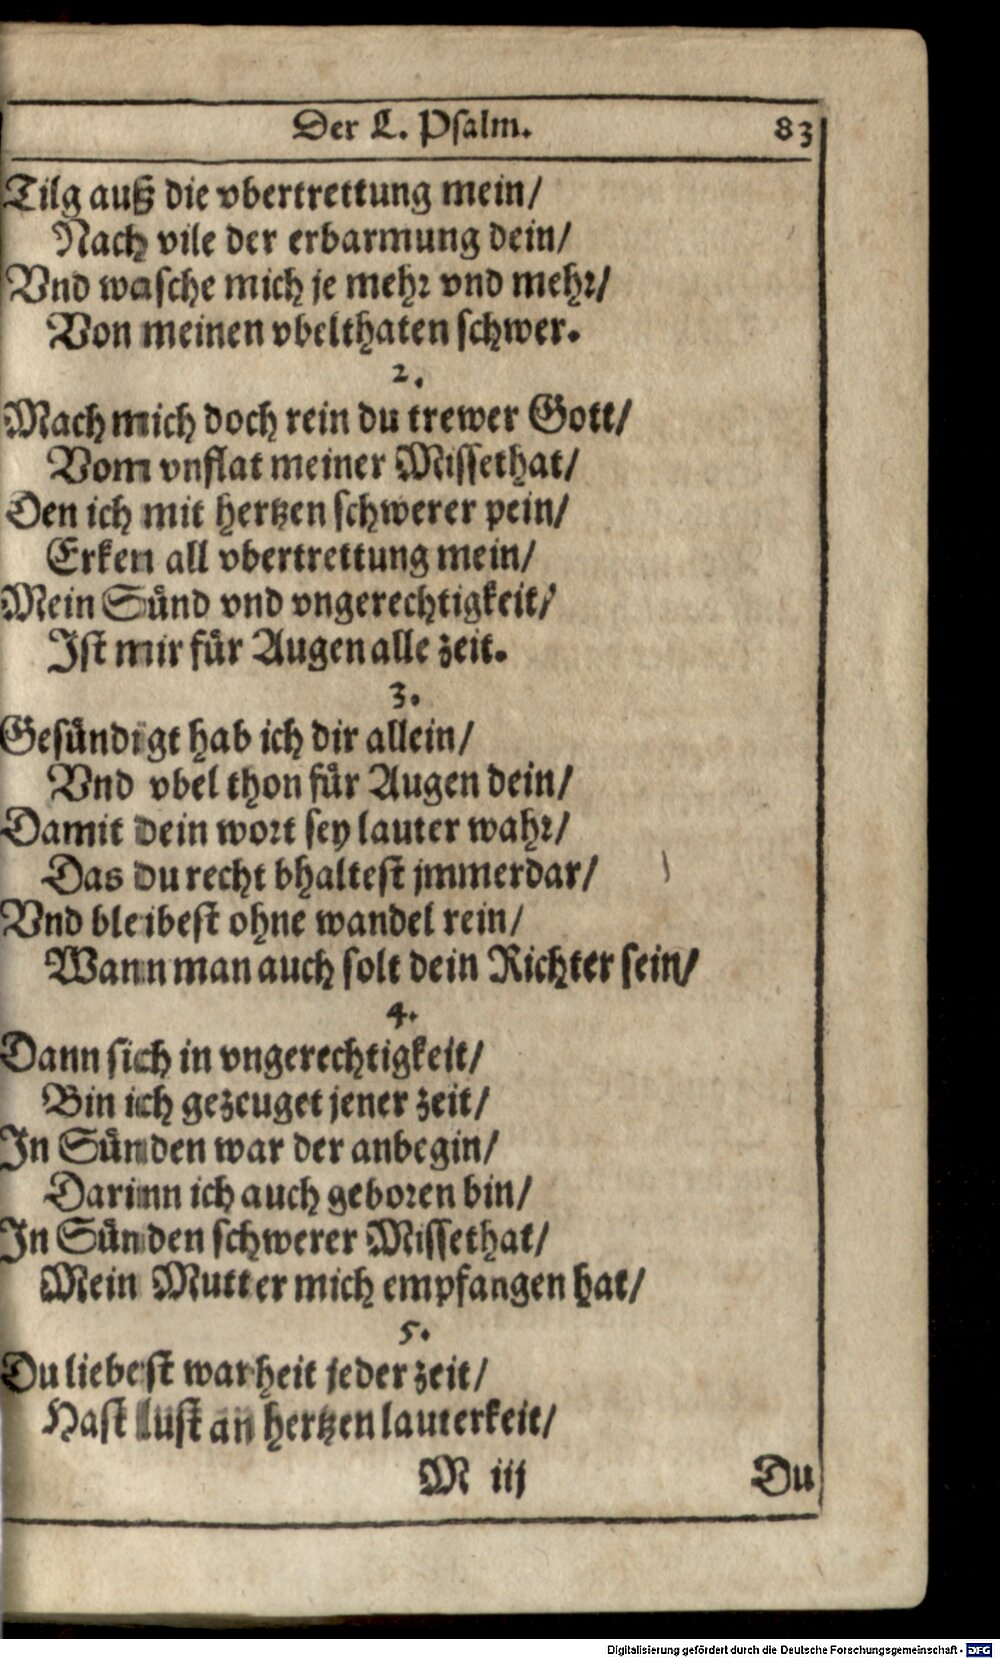 Der L. Psalm. 83
Tilg auß die vbertrettung mein/
Nach vile der erbarmung dein/
Vnd wasche mich je mehr vnd mehr/
Von meinen vbelthaten schwer.
2.
Mach mich doch rein du trewer Gott/
Vom vnflat meiner Missethat/
Den ich mit hertzen schwerer pein/
Erken all vbertrettung mein/
Mein Sünd vnd vngerechtigkeit/
Ist mir für Augen alle zeit.
3.
Gesündigt hab ich dir allein/
Vnd vbel thon für Augen dein/
Damit dein wort sey lauter wahr/
Das du recht bhaltest jmmerdar/
Vnd bleibest ohne wandel rein/
Wann man auch solt dein Richter sein/
4.
Dann sich in vngerechtigkeit/
Bin ich gezeuget jener zeit/
In Sünden war der anbegin/
Darinn ich auch geboren bin/
In Sünden schwerer Missethat/
Mein Mutter mich empfangen hat/
5.
Du liebest warheit jeder zeit/
Hast lust an hertzen lauterkeit/
M iij Du
Digitalisierung gefördert durch die Deutsche Forschungsgemeinschaft - DFG